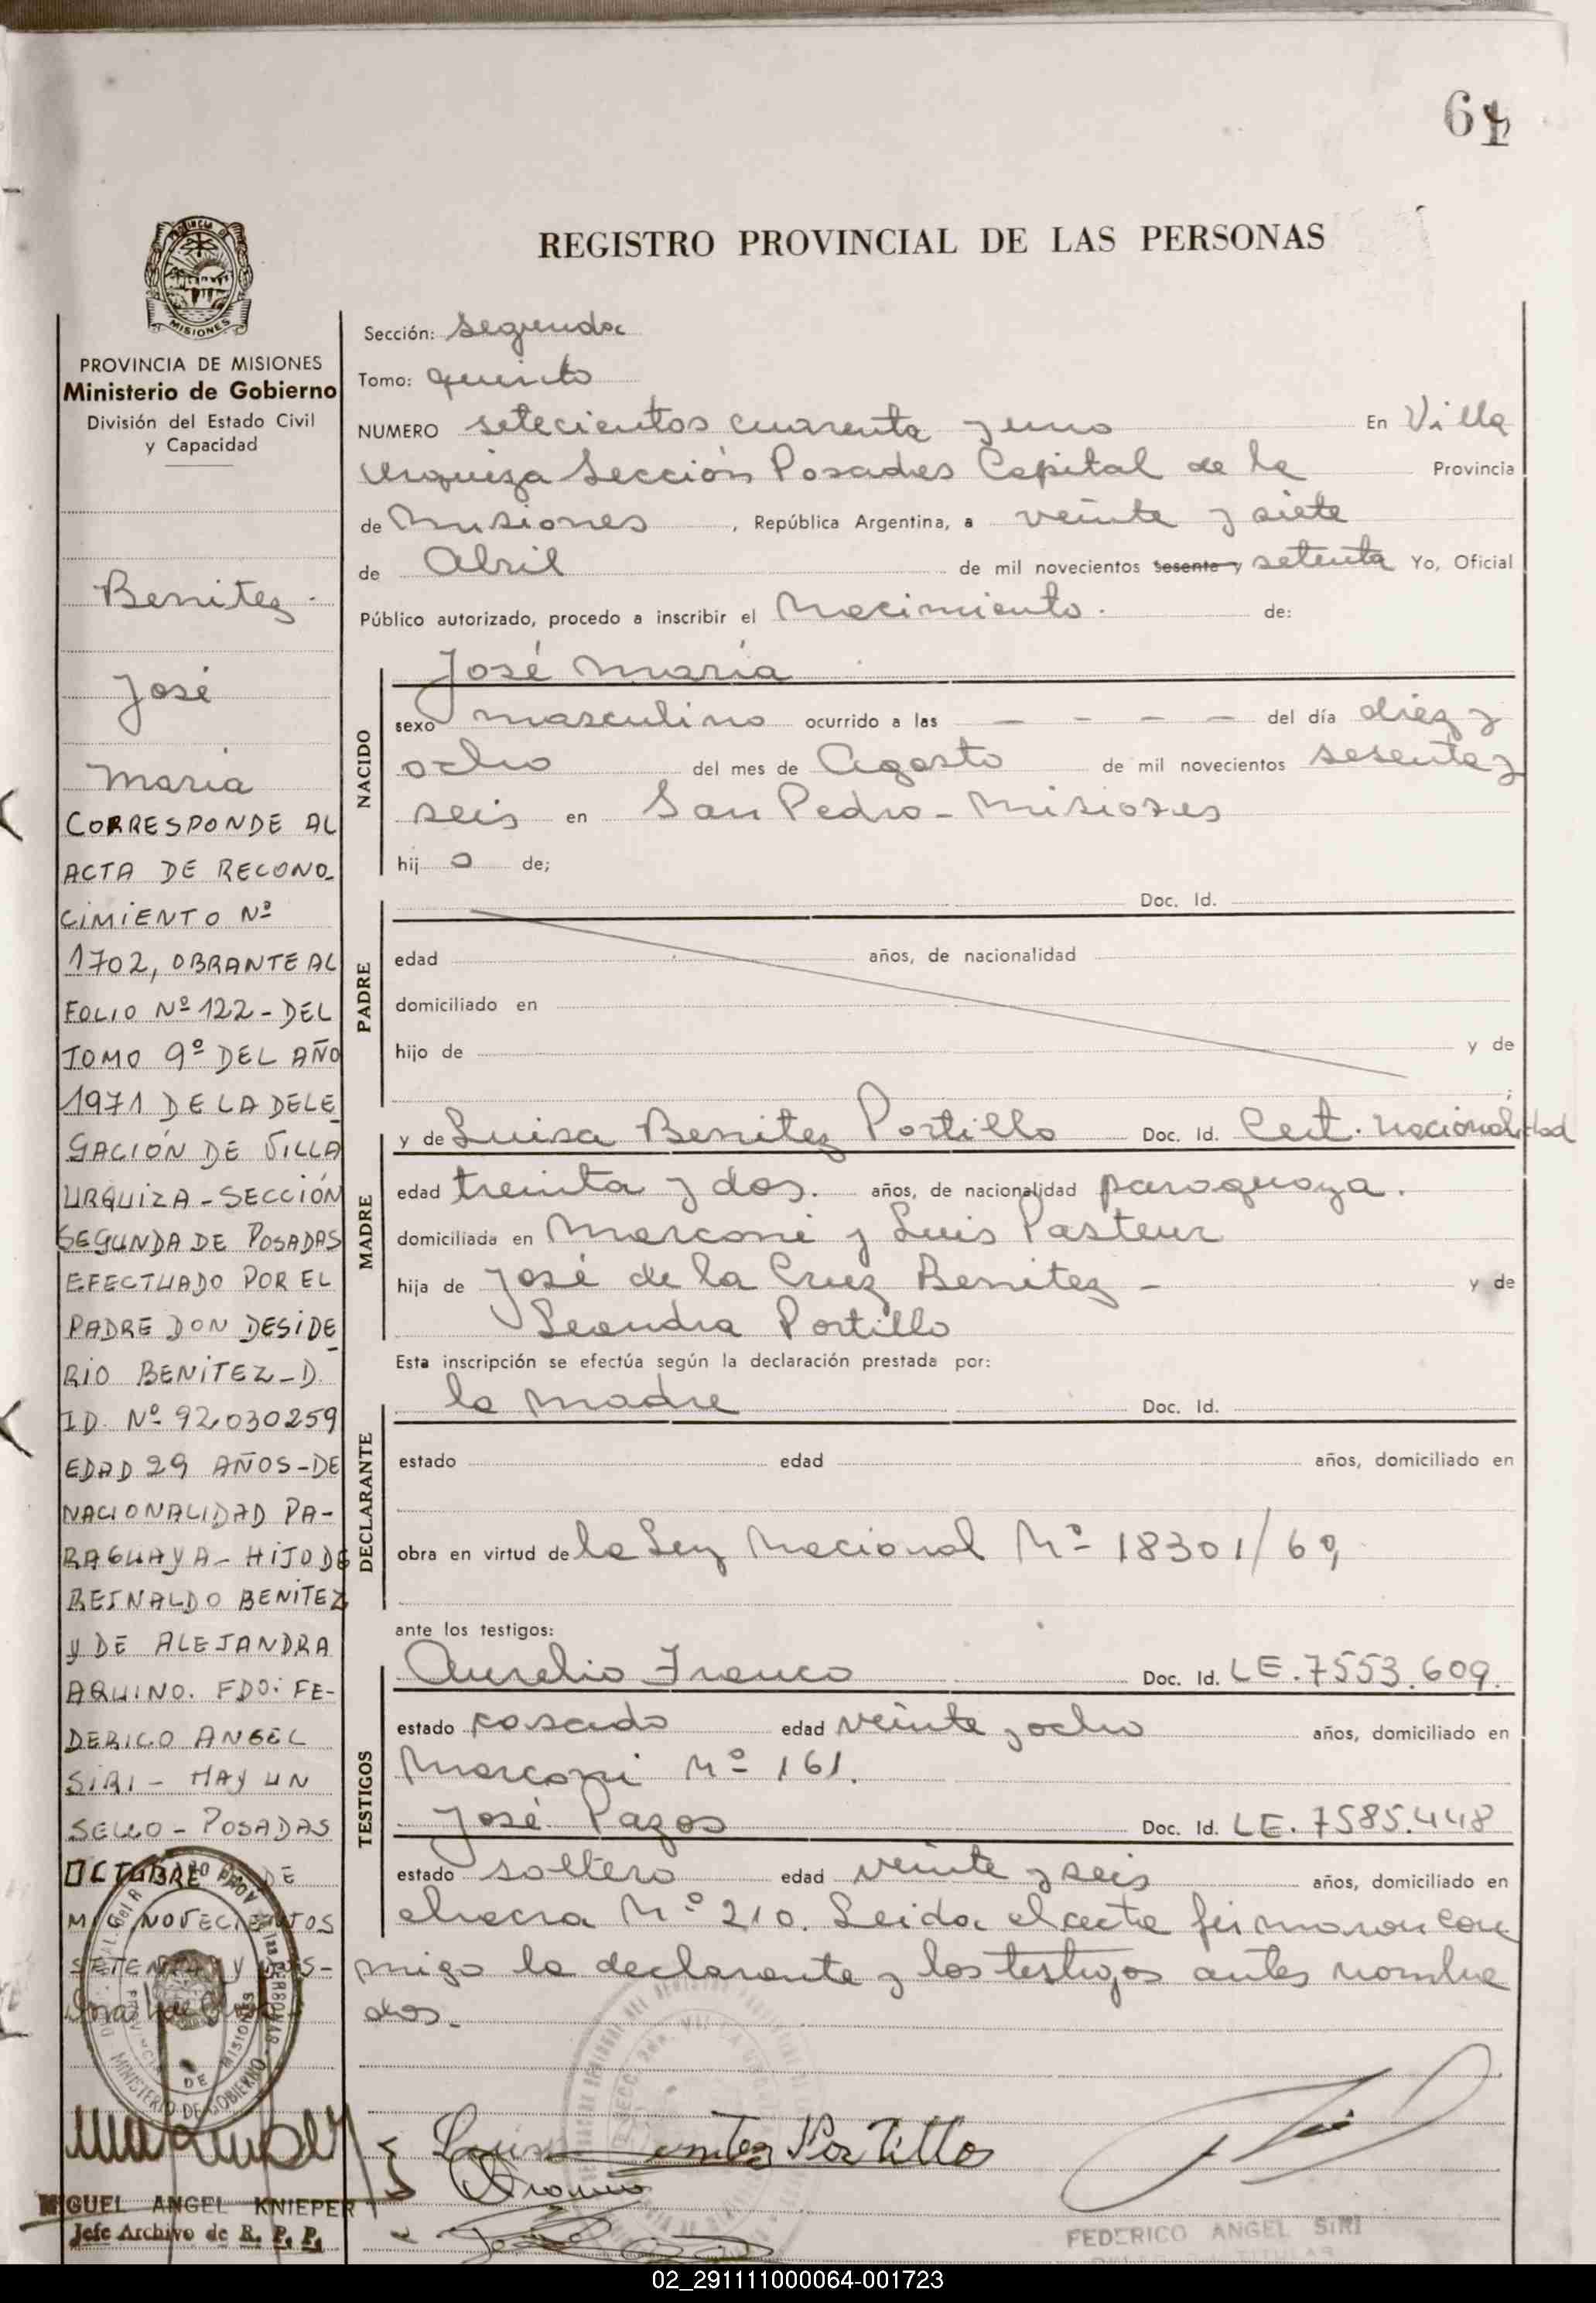 REGISTRO PROVINCIAL DE LAS PERSONAS
MISIONES
PROVINCIA DE MISIONES
Ministerio de Gobierno
División del Estado Civil
y Capacidad
Benitez.
José
María
CORRESPONDE AL
ACTA DE RECONO-
CIMIENTO Nº
1702, OBRANTE AL
FOLIO Nº 122 - DEL
TOMO 9º DEL AÑO
1971 DE LA DELE
GACIÓN DE VILLA
URQUIZA - SECCIÓN
SEGUNDA DE POSADAS
EFECTUADO POR EL
PADRE DON DESIDE
RIO BENITEZ - D.
ID. Nº 92.030259
EDAD 29 AÑOS - DE
NACIONALIDAD PA-
RAGUAYA - HIJO DE
REINALDO BENITEZ
y DE ALEJANDRA
AQUINO. FDO: FE-
DERICO ANGEL
SIRI - HAY UN
SELLO - POSADAS
OCTUBRE DE
MIL NOVECIENTOS
SETENTA Y
MINISTERIO DE GOBIERNO
DE MISIONES
MIGUEL ANGEL KNIEPER
Jefe Archivo de R. P. P.
Sección: Segunda
Tomo: quinto
NUMERO setecientos cuarenta y uno En Villa
Urquiza Sección Posadas Capital de la Provincia
de Misiones, República Argentina, a veinte y siete
de Abril de mil novecientos sesenta y setenta Yo, Oficial
Público autorizado, procedo a inscribir el Nacimiento. de:
NACIDO
José María
sexo masculino ocurrido a las - - - - del día diez y
ocho del mes de Agosto de mil novecientos sesenta y
seis en San Pedro - Misiones
hij o de;
PADRE
Doc. Id.
edad años, de nacionalidad
domiciliado en
hijo de y de
;
MADRE
y de Luisa Benitez Portillo Doc. Id. Cert. nacionalidad
edad treinta y dos. años, de nacionalidad paraguaya.
domiciliada en Marconi y Luis Pasteur
hija de José de la Cruz Benitez - y de
Leandra Portillo
Esta inscripción se efectúa según la declaración prestada por:
DECLARANTE
la madre Doc. Id.
estado edad años, domiciliado en
obra en virtud de la Ley Nacional Nº 18301/69
ante los testigos:
TESTIGOS
Aurelio Franco Doc. Id. LE. 7553.609.
estado casado edad veinte y ocho años, domiciliado en
Marconi Nº 161.
José Pagos Doc. Id. LE. 7585.448
estado soltero edad veinte y seis años, domiciliado en
chacra Nº 210. Leida el acta firmaron con
migo la declarante y los testigos antes nombra
dos.
Luisa Benitez Portillo
FEDERICO ANGEL SIRI
02_291111000064-001723